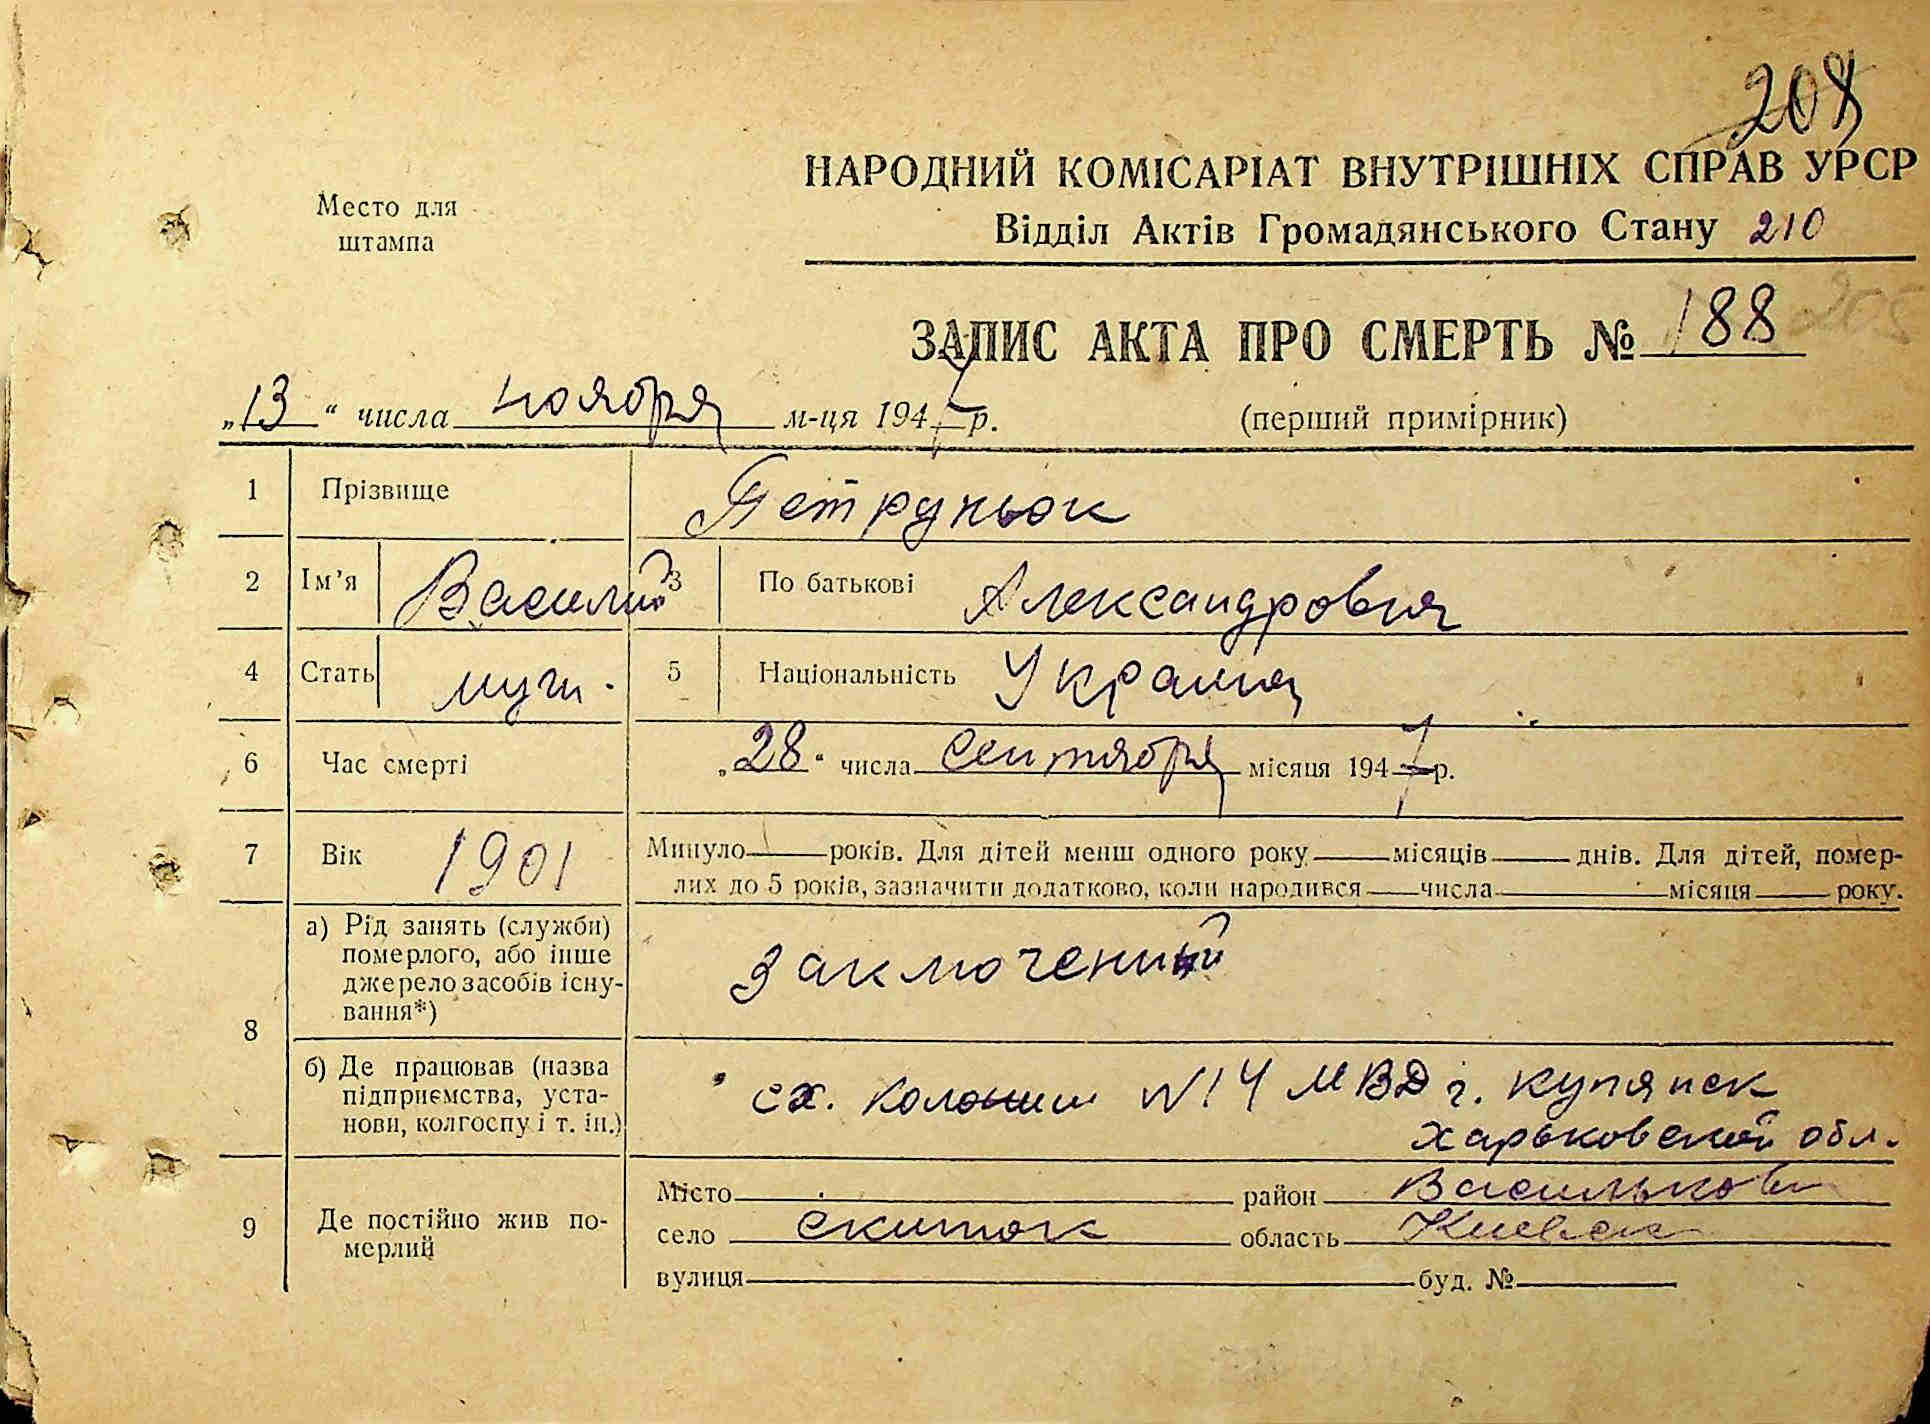 208
НАРОДНИЙ КОМІСАРІАТ ВНУТРІШНІХ СПРАВ УРСР
Место для штампа
Відділ Актів Громадянського Стану 210
ЗАПИС АКТА ПРО СМЕРТЬ № 188
„13“ числа ноября м-ця 1947 р. (перший примірник)
1 Прізвище Петруньок
2 Ім’я Василий 3 По батькові Александрович
4 Стать муж. 5 Національність Украинец
6 Час смерті „28“ числа сентября місяця 1947 р.
7 Вік 1901 Минуло років. Для дітей менш одного року місяців днів. Для дітей, помер-
лих до 5 років, зазначити додатково, коли народився числа місяця року.
8 а) Рід занять (служби) померлого, або інше джерело засобів існу-вання*) Заключений
б) Де працював (назва підприємства, уста-нови, колгоспу і т. ін.) сх. колонии N14 МВД г. Купянск
Харьковской обл.
9 Де постійно жив по-мерлий Місто район Васильков
село скиток область Киевск
вулиця буд. №